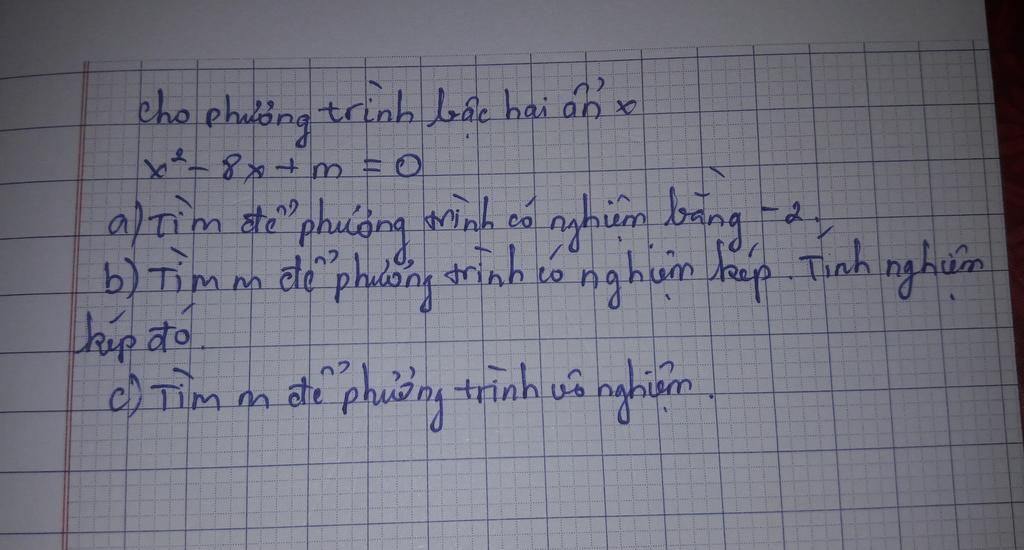 Cho phương trình bậc hai ẩn x
x² - 8x + m = 0
a) Tìm để phương trình có nghiệm bằng -2.
b) Tìm m để phương trình có nghiệm kép. Tính nghiệm
kép đó.
c) Tìm m để phương trình vô nghiệm.